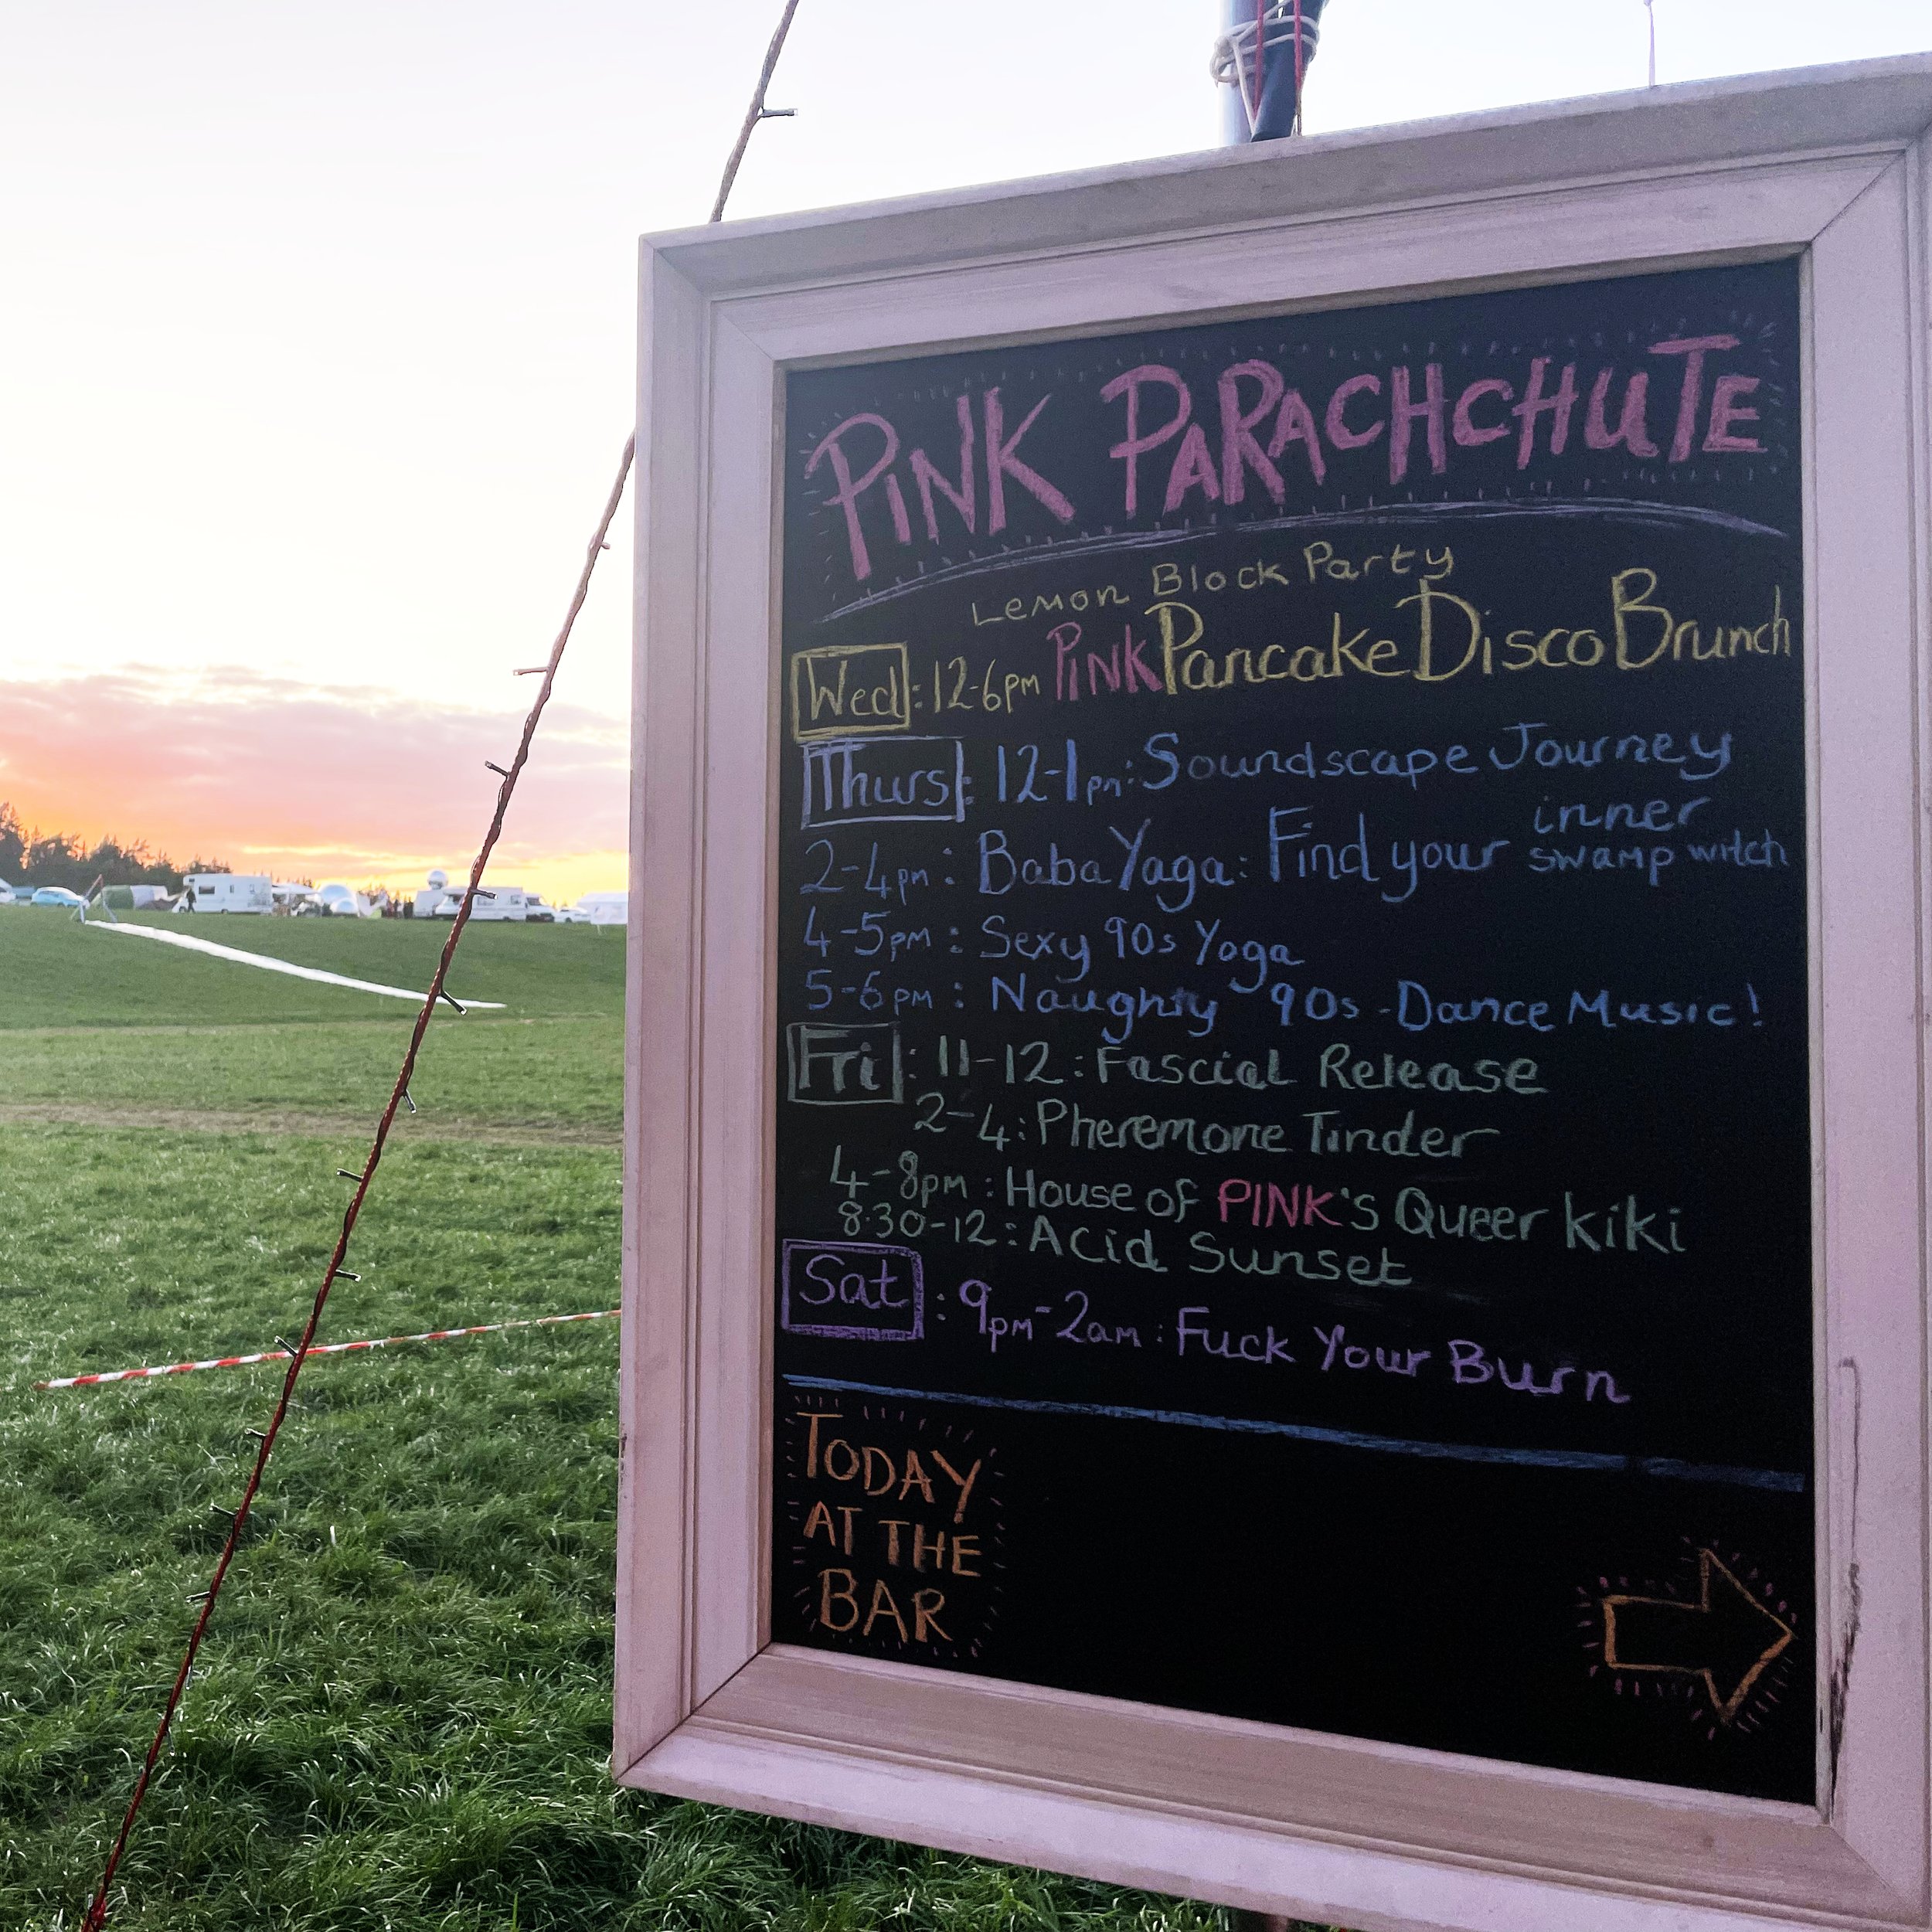 PINK PARACHCHUTE
Lemon Block Party
Wed: 12-6pm PINK Pancake Disco Brunch
Thurs: 12-1pm: Soundscape Journey
2-4pm: Baba Yaga: Find your inner swamp witch
4-5pm: Sexy 90s Yoga
5-6pm: Naughty 90s - Dance Music!
Fri: 11-12: Fascial Release
2-4: Pheremone Tinder
4-8pm: House of PINK's Queer kiki
8:30-12: Acid Sunset
Sat: 9pm-2am: Fuck Your Burn
TODAY
AT THE
BAR